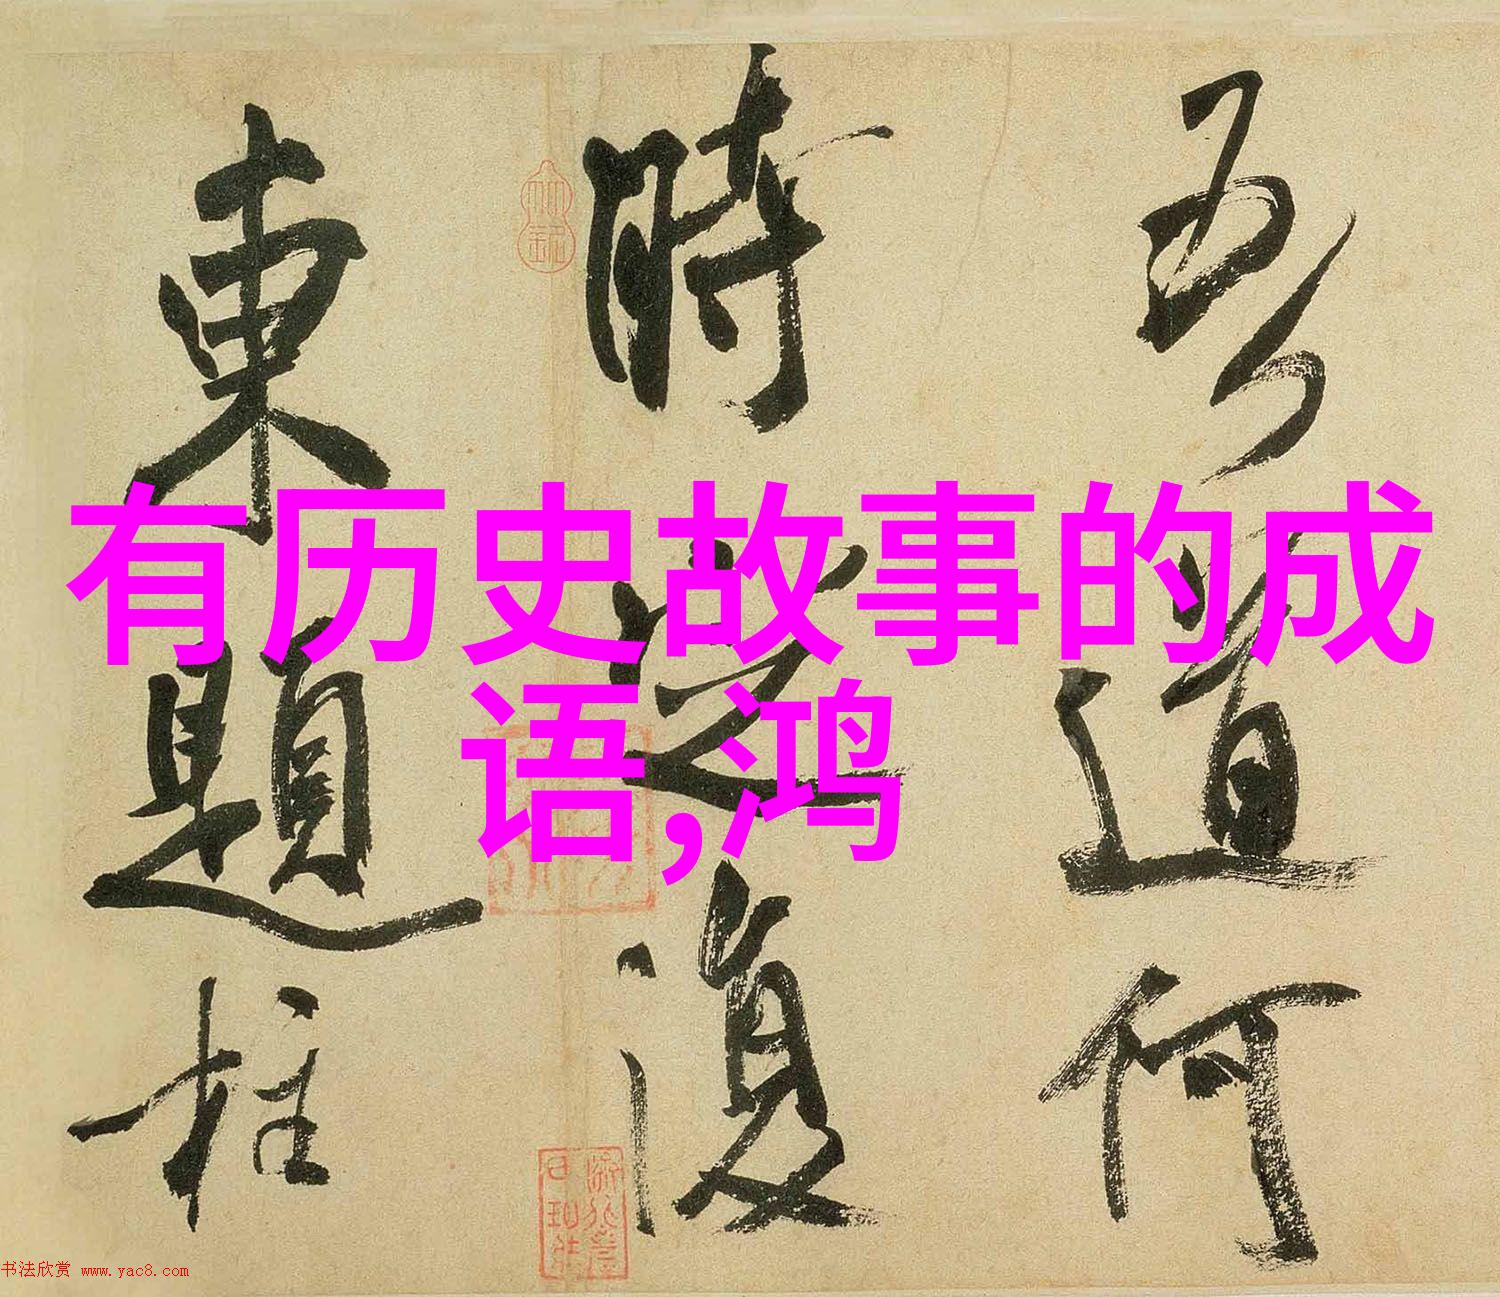 有历史故事的成
语,鸿
吾道何
時送復
東題柱
书法欣赏 www.yac8.com